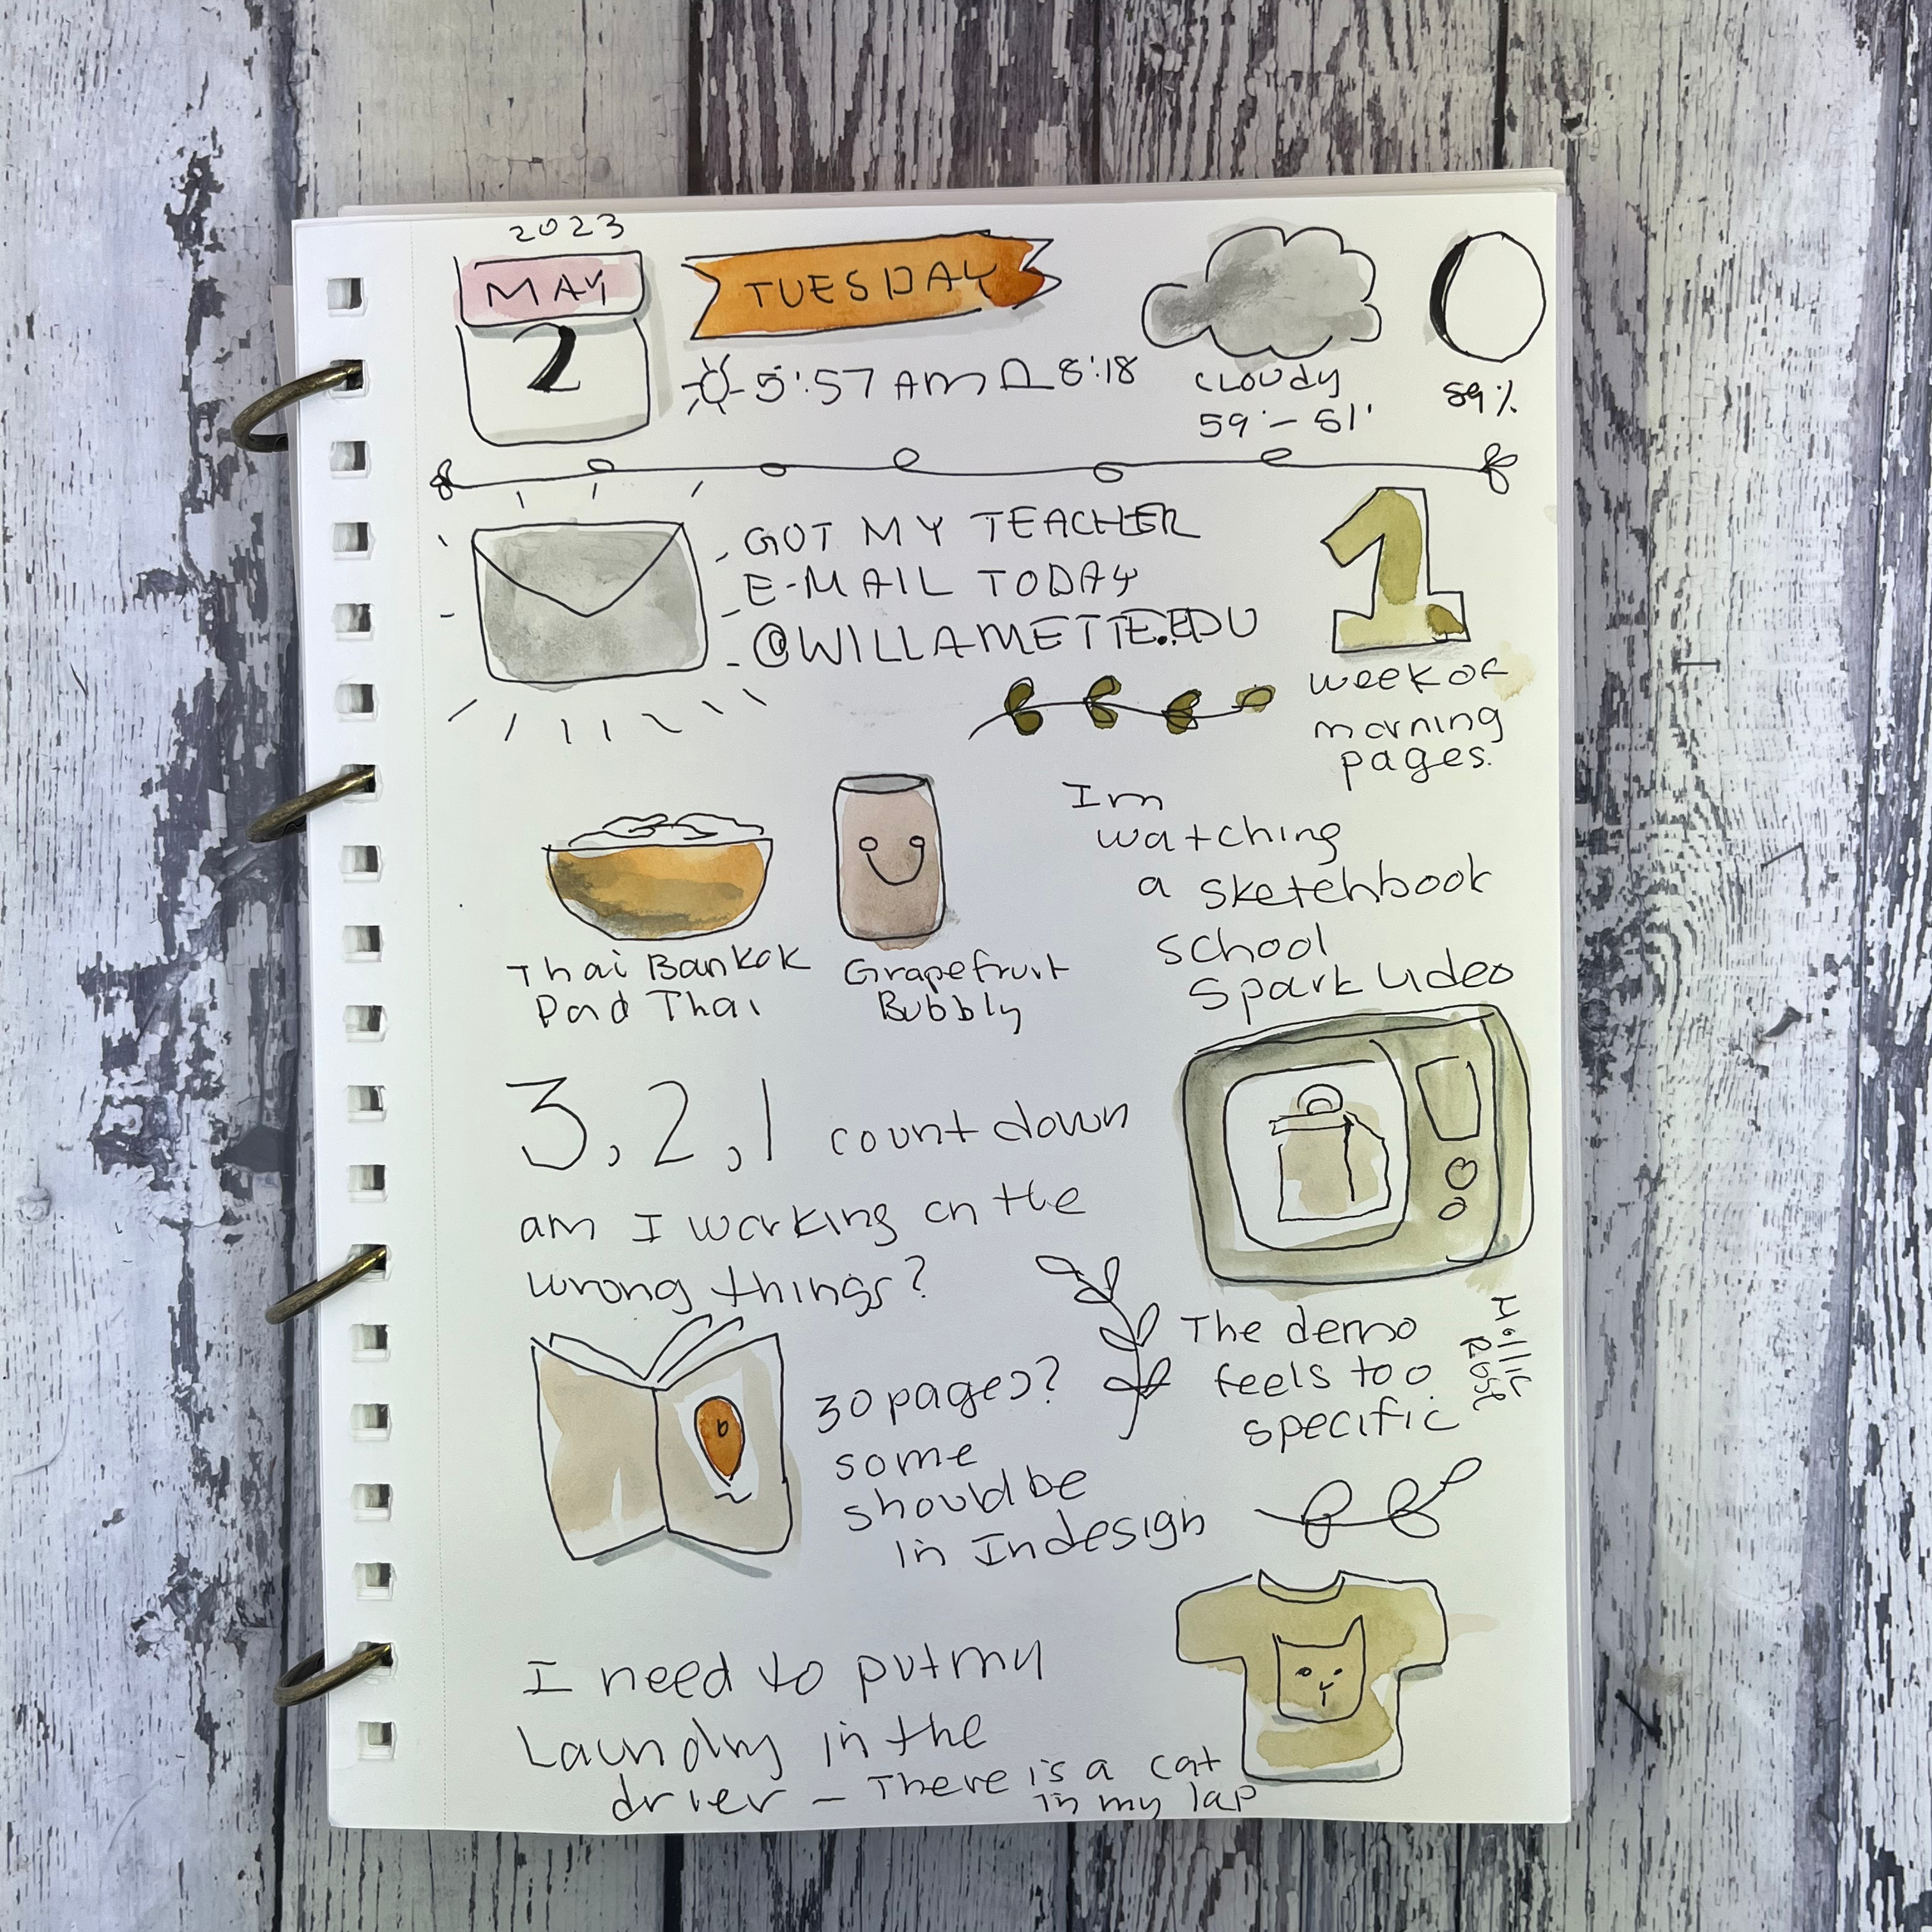 2023
MAY
2
TUESDAY
5:57 AM 8:18
CLOUDY
59° - 51°
89%
GOT MY TEACHER
E-MAIL TODAY
@WILLAMETTE.EDU
1
week of
morning
pages.
Thai Bankok
Pad Thai
Grapefruit
Bubbly
Im
watching
a sketchbook
school
Spark Video
3, 2, 1 count down
am I working on the
wrong things?
30 pages?
some
should be
in Indesign
The demo
feels too
specific
Mollie
Rose
I need to put my
Laundry in the
drier - There is a cat
in my lap